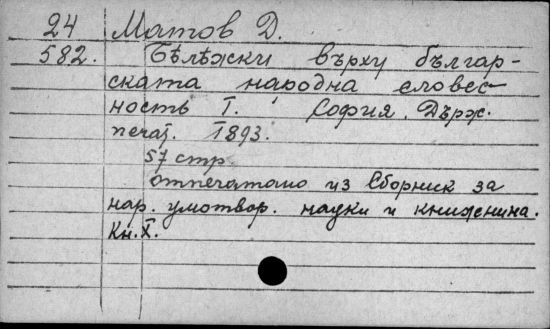 24 Матов Д.
582. Бѣлѣжки върху българ-
ската народна словес-
ность I. София. Държ.
печат. 1893.
57 стр
отпечатано из Сборник за
нар. умотвор. науки и книжнина.
Кн. X.